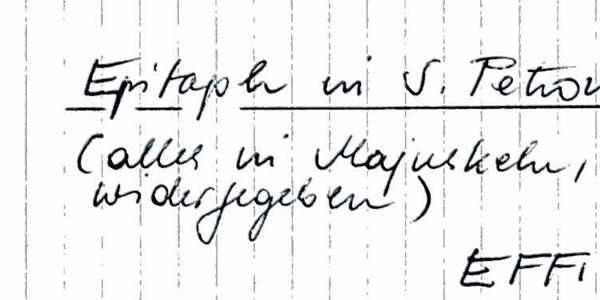 Epitaph in S. Petron
(alles in Majuskeln,
widergegeben)
EFFI